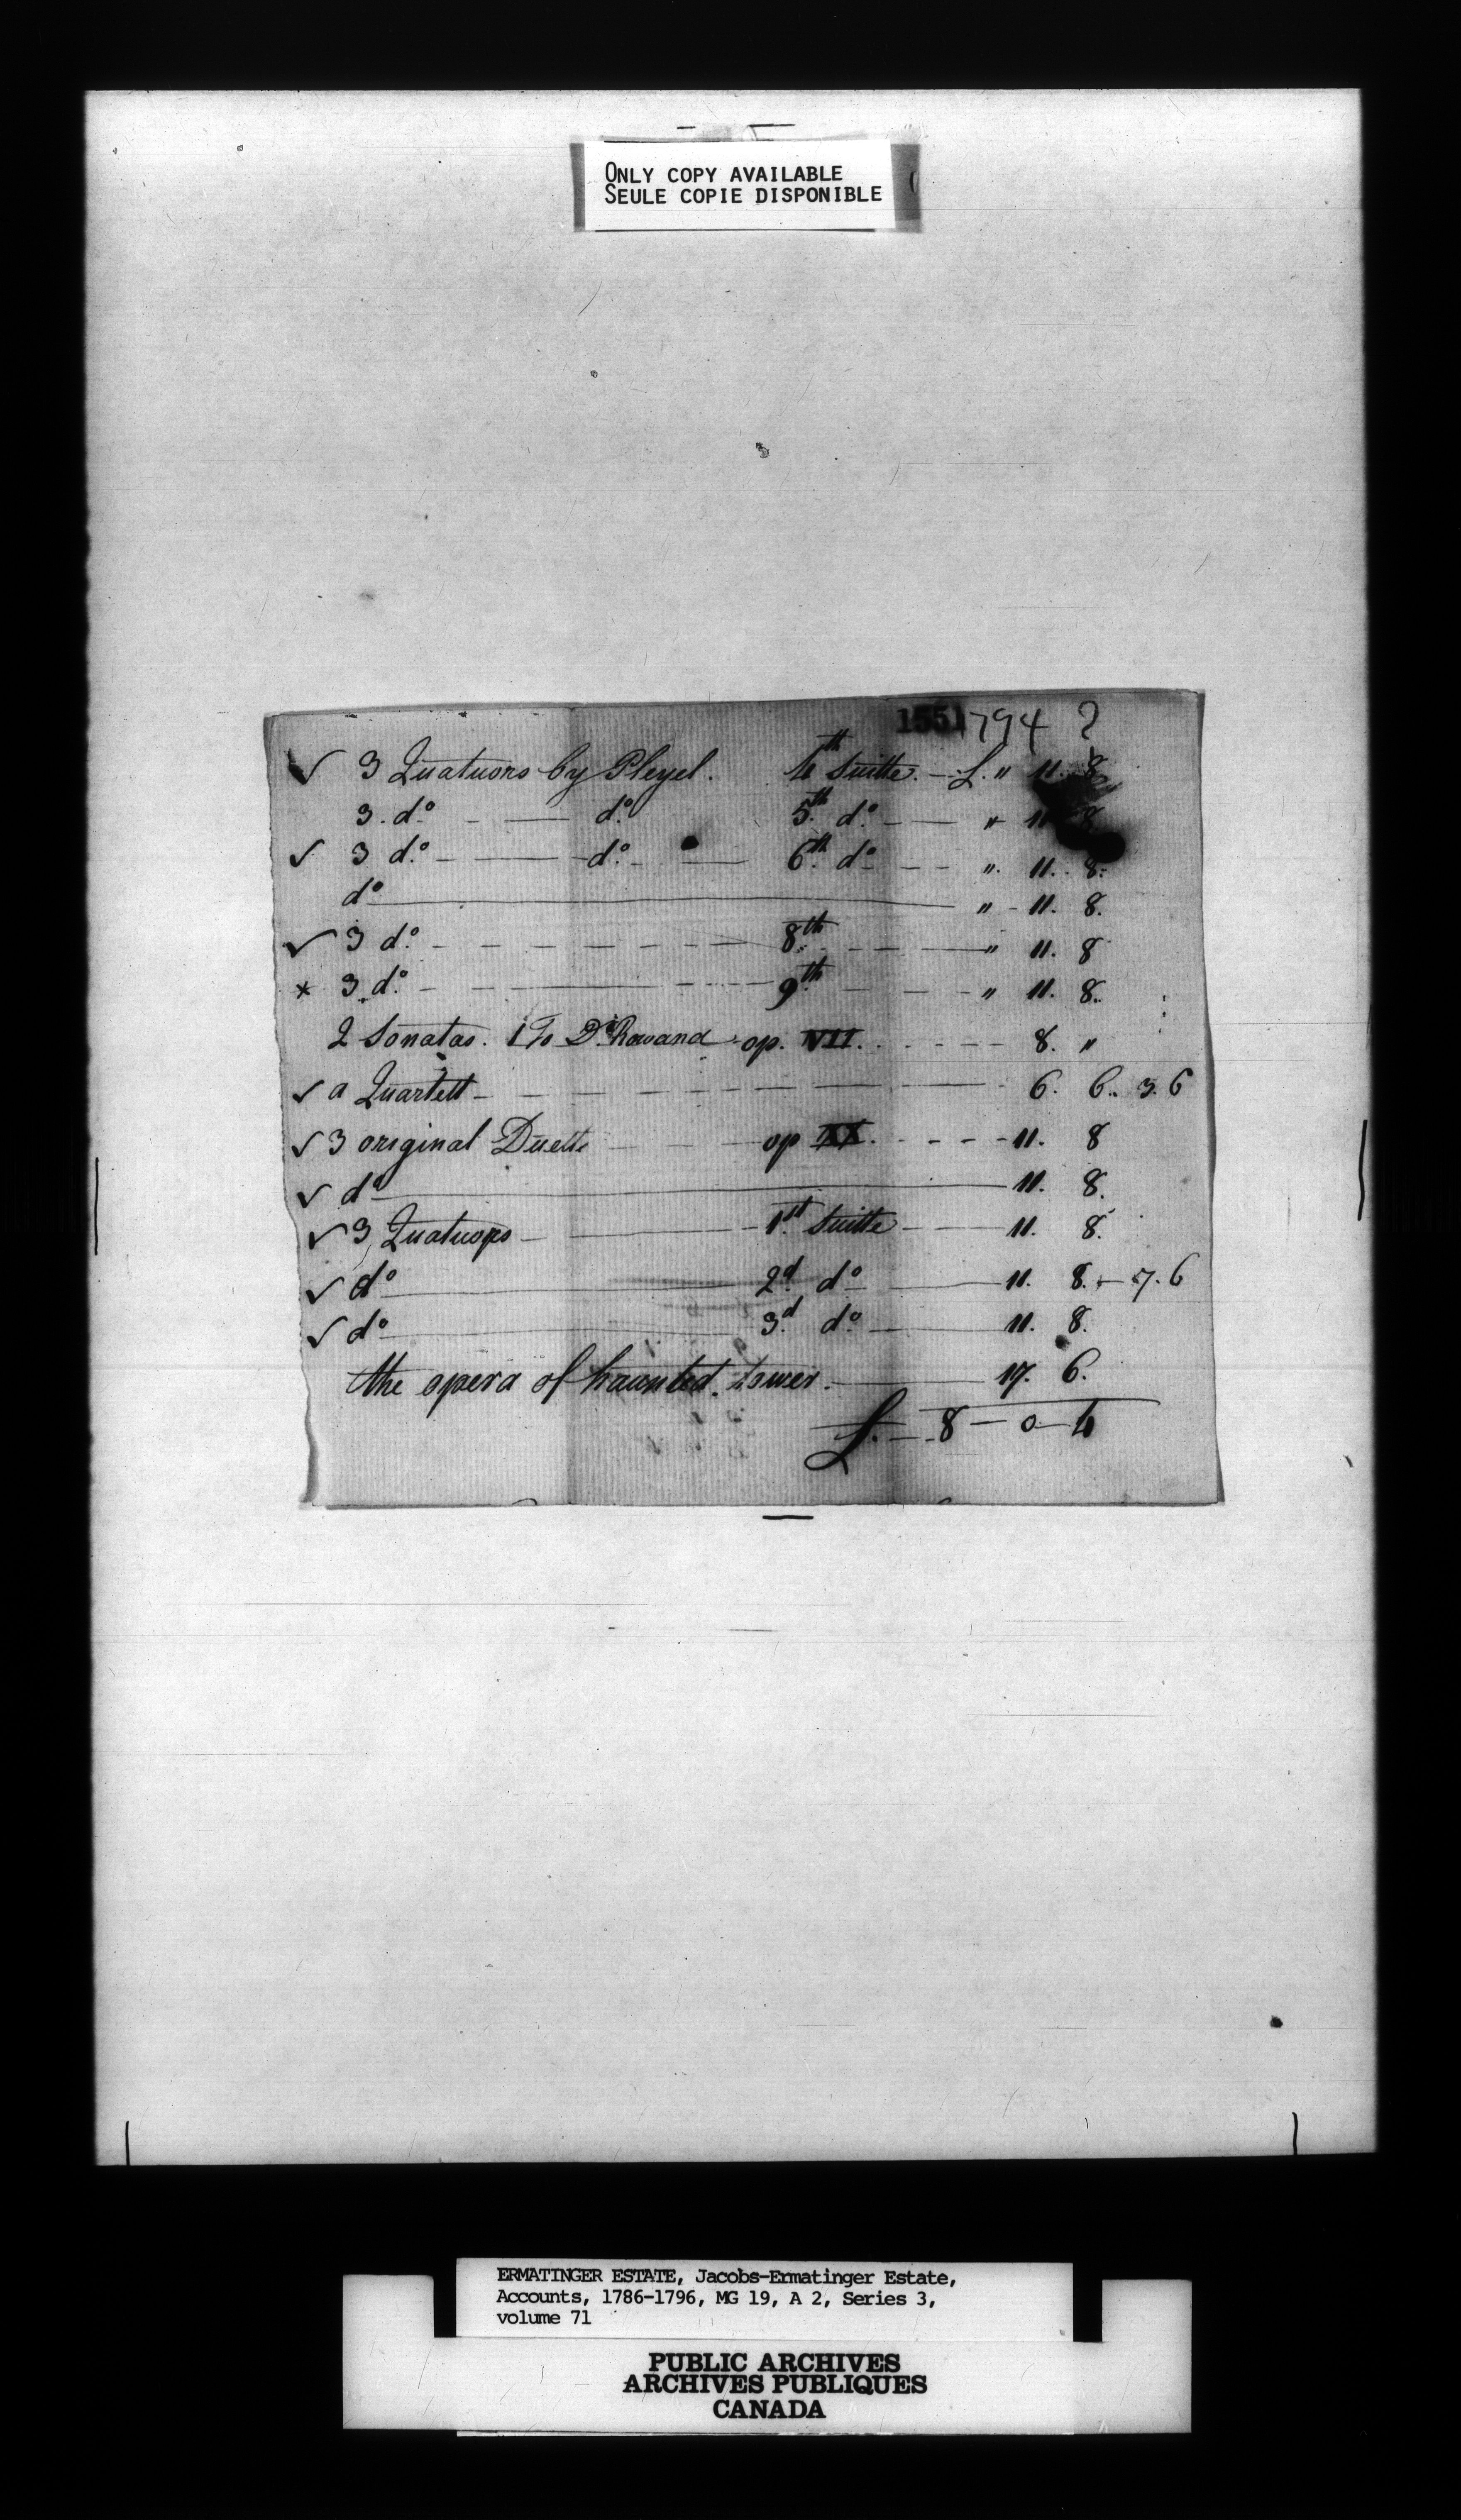 ONLY COPY AVAILABLE
SEULE COPIE DISPONIBLE
1551 1794 ?
✓ 3 Quatuors by Pleyel. 4th Suitte. — £. " 11. 8
3. do. — — do. 5th do. — — " 11 8
✓ 3 do. — — do. — 6th do — — ". 11. 8.
do — " - 11. 8.
✓ 3 do. — — — 8th — — " 11. 8
x 3 do. — — — 9th — — " 11. 8.
2 Sonatas. 1 To Dr Rowand op. VII. - - - - 8. "
✓ a Quartett — — — 6. 6. 3. 6
✓ 3 original Duetts — — op XX. - - - - 11. 8
✓ do — 11. 8.
✓ 3 Quatuors — — 1st Suitte — 11. 8.
✓ do — 2d do — 11. 8. — 7. 6
✓ do — 3d do. — 11. 8.
the opera of haunted. tower. — 17. 6.
£. — 8 — 0 — 4
ERMATINGER ESTATE, Jacobs-Ermatinger Estate,
Accounts, 1786-1796, MG 19, A 2, Series 3,
volume 71
PUBLIC ARCHIVES
ARCHIVES PUBLIQUES
CANADA